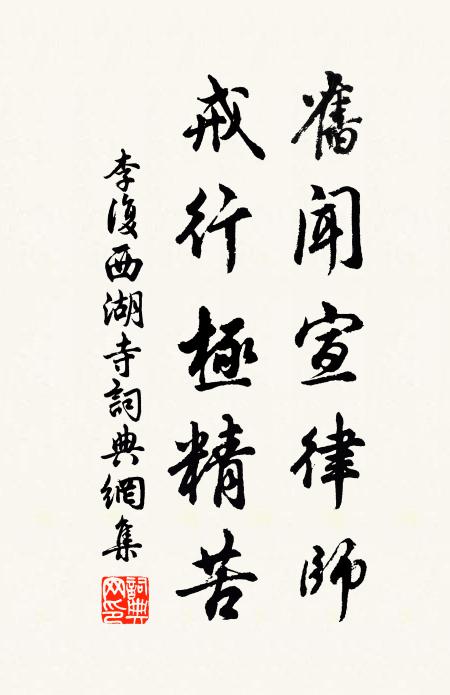 舊聞宣律師
戒行極精苦
李復西湖寺詞典網集
詞典網印